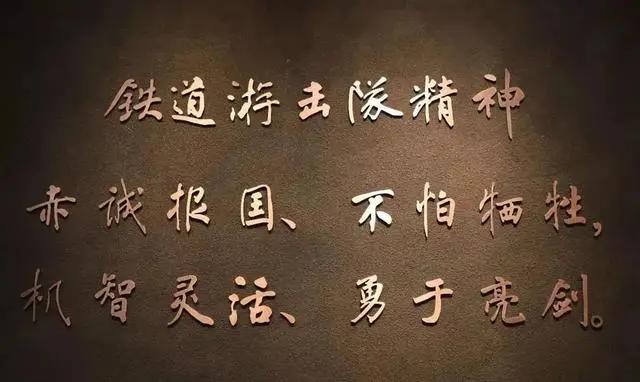 铁道游击队精神
赤诚报国、不怕牺牲,
机智灵活、勇于亮剑。